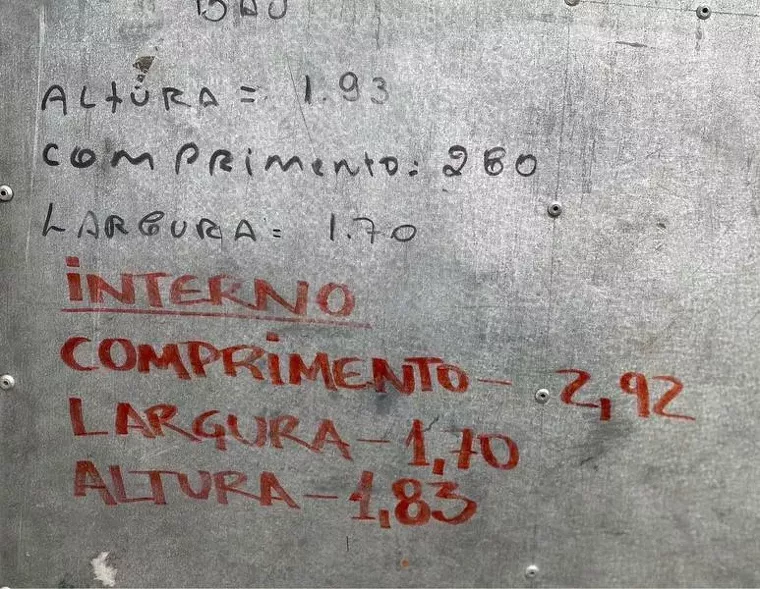 BAÚ
ALTURA = 1.93
COMPRIMENTO: 280
LARGURA = 1.70
INTERNO
COMPRIMENTO - 2,92
LARGURA - 1,70
ALTURA - 1,83